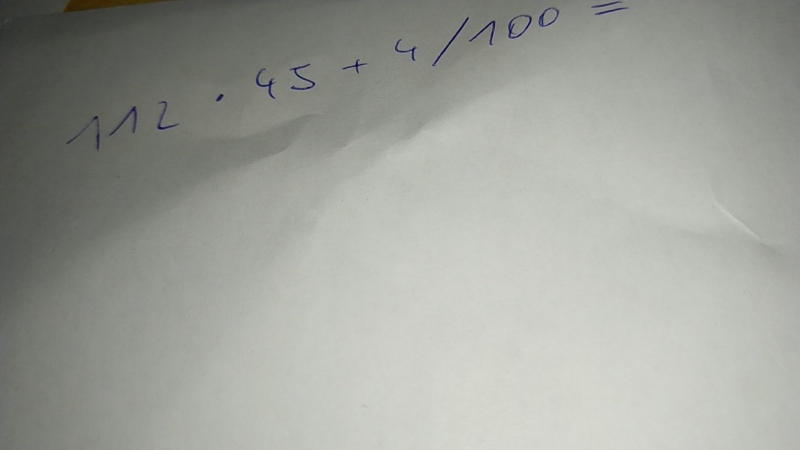 112 · 45 + 4/100 =